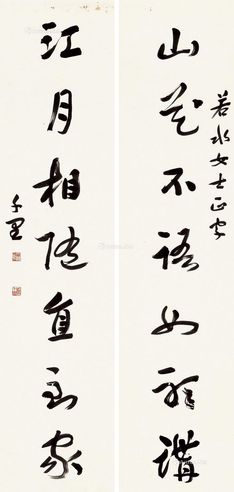 若水女士正字
山花不語如聽講
江月相隨直到家
千里